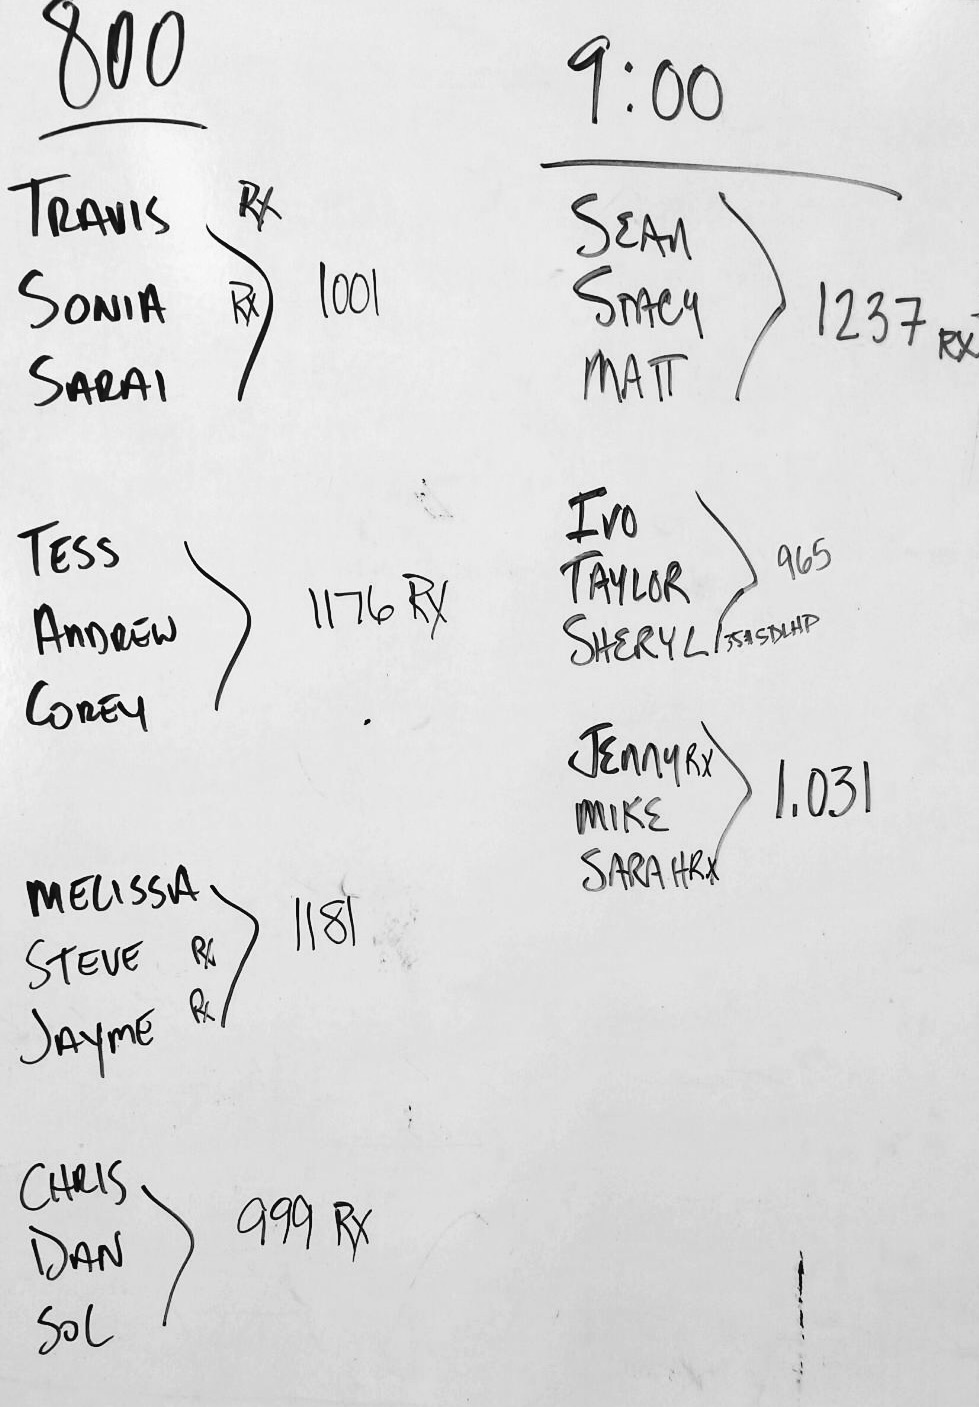 800
TRAVIS RX
SONIA RX 1001
SARAI
TESS
ANDREW 1176 RX
COREY
MELISSA
STEVE RX 1181
JAYME RX
CHRIS
DAN 999 RX
SOL
9:00
SEAN
STACY 1237 RX
MATT
IVO
TAYLOR 965
SHERYL SDLHP
JENNY RX
MIKE 1.031
SARAH RX